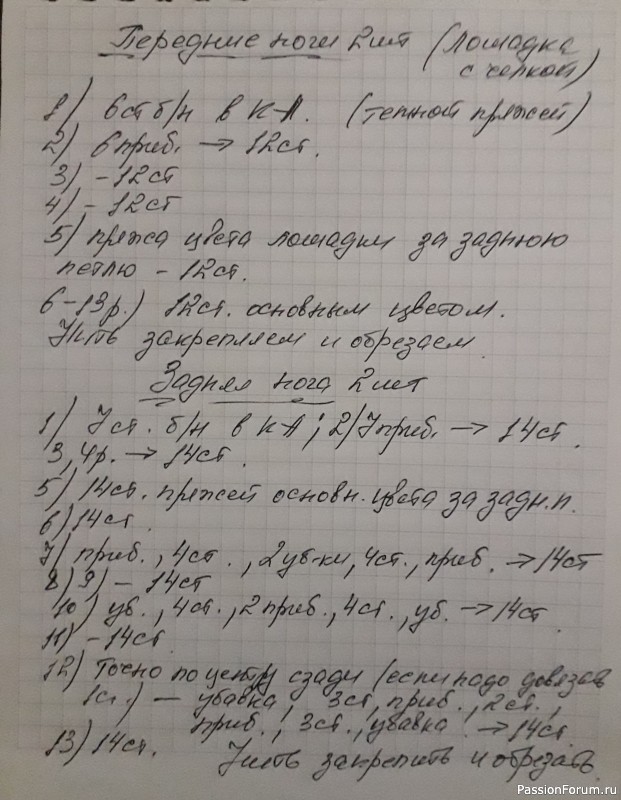 Передние ноги 2шт (лошадка
с челкой)
1) 6ст б/н в К-А. (темной пряжей)
2) 6 приб. → 12ст.
3) - 12ст
4) - 12ст
5) пряжа цвета лошадки за заднюю
петлю - 12ст.
6-13р.) 12ст. основным цветом.
Нить закрепляем и обрезаем.
Задняя нога 2шт
1) 7ст. б/н в КА; 2) 7приб. → 14ст.
3,4р. → 14ст.
5) 14ст. пряжей основн. цвета за задн.п.
6) 14ст.
7) приб., 4ст., 2уб-ки, 4ст., приб. → 14ст
8) 9) - 14ст
10) уб., 4ст., 2приб., 4ст., уб. → 14ст.
11) - 14ст.
12) Точно по центру сзади (если надо довязать
1ст.) — убавка, 3ст, приб., 2ст.,
приб., 3ст., убавка → 14ст.
13) 14ст. Нить закрепить и обрезать.
PassionForum.ru